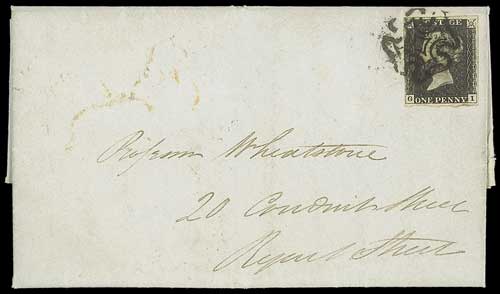 POSTAGE
G I
ONE PENNY
Professor Wheatstone
20 Conduit Street
Regent Street